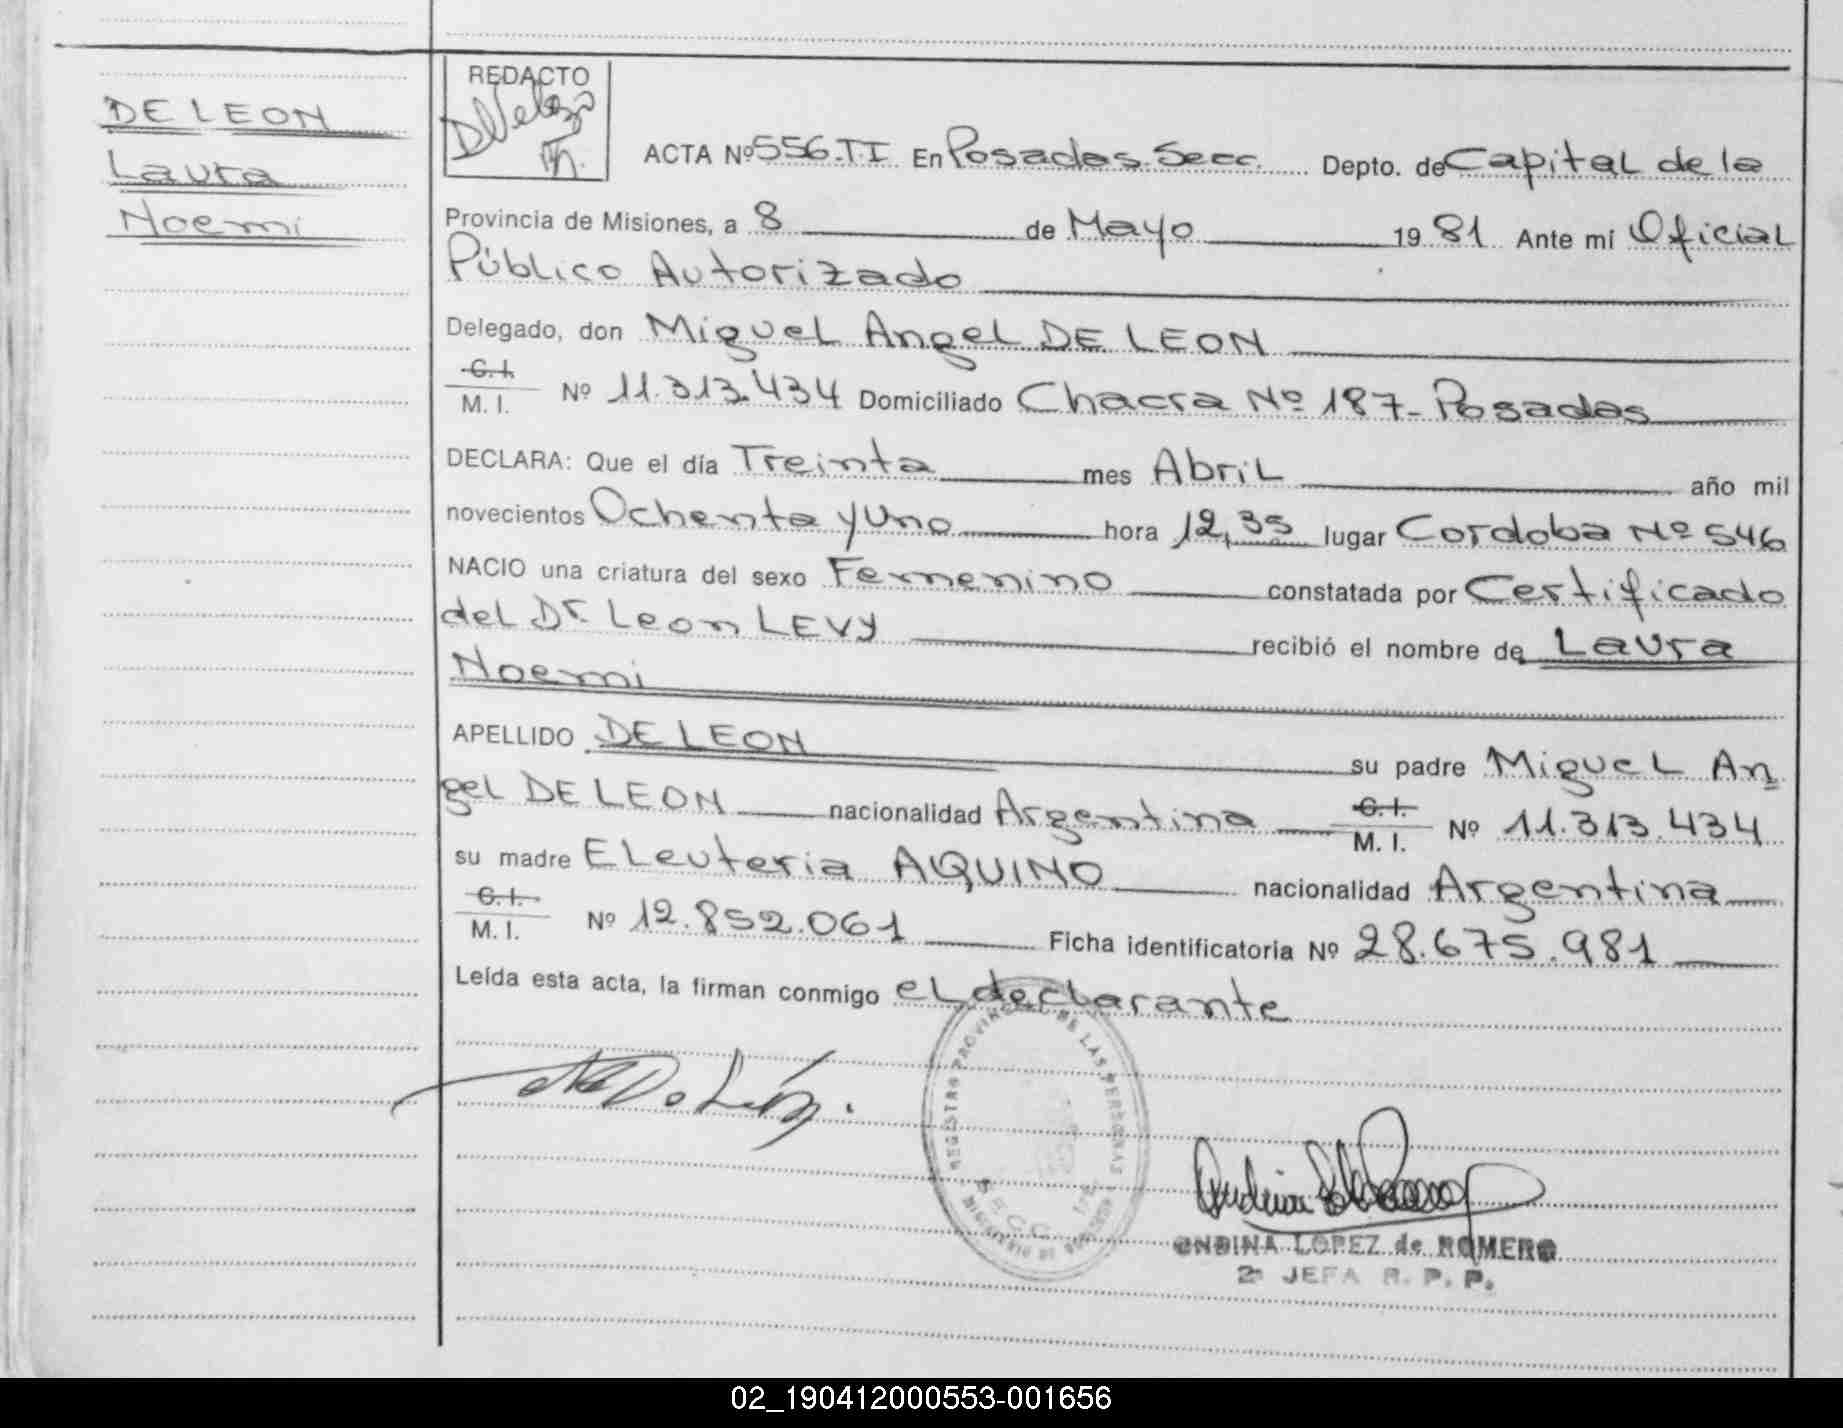 DE LEON
Laura
Noemi
REDACTO
ACTA Nº 556.T.I En Posadas. Secc. Depto. de Capital de la
Provincia de Misiones, a 8 de Mayo 19 81 Ante mi Oficial
Público Autorizado
Delegado, don Miguel Angel DE LEON
C. I.
M. I. Nº 11.313.434 Domiciliado Chacra Nº 187- Posadas
DECLARA: Que el día Treinta mes Abril año mil
novecientos Ochenta y Uno hora 12,35 lugar Cordoba Nº 546
NACIO una criatura del sexo Femenino constatada por Certificado
del Dr. Leon LEVY recibió el nombre de Laura
Noemi
APELLIDO DE LEON su padre Miguel An
gel DE LEON nacionalidad Argentina C. I. M. I. Nº 11.313.434
su madre ELeuteria AQUINO nacionalidad Argentina
C. I.
M. I. Nº 12.852.061 Ficha identificatoria Nº 28.675.981
Leída esta acta, la firman conmigo el declarante
REGISTRO PROVINCIAL DE LAS PERSONAS
MINISTERIO DE GOBIERNO
SECC.
ONDINA LOPEZ de ROMERO
2ª JEFA R. P. P.
02_190412000553-001656